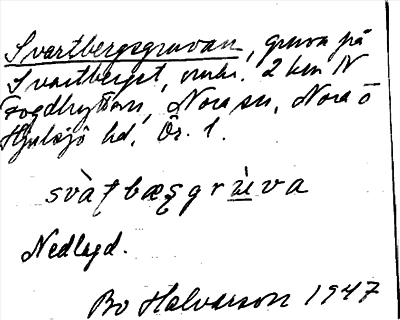 Svartbergsgruvan, gruva på
Svartberget, omkr. 2 km N
Fogdhyttan, Nora sn, Nora o
Hjulsjö hd, Ör. l.
svàʈbæʂgrùva
Nedlagd.
Bo Halvarson 1947